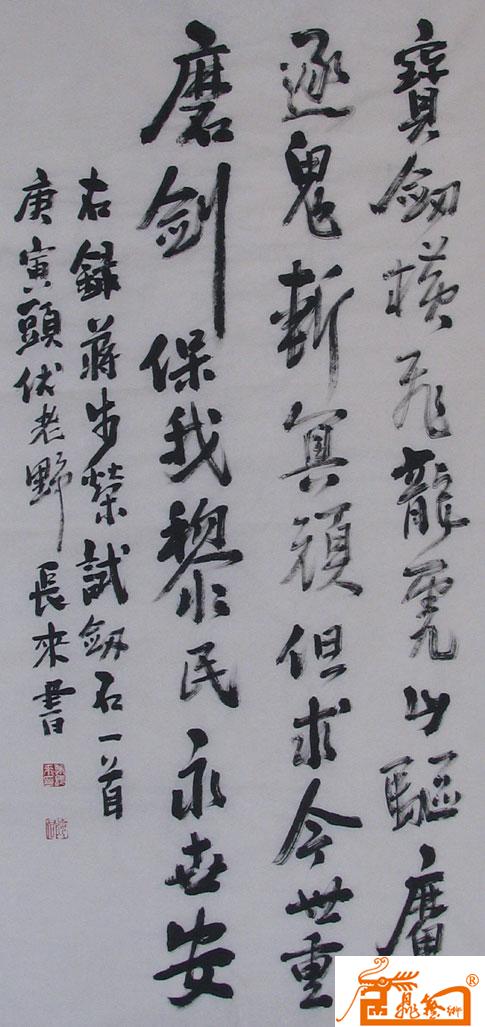 寶劒橫飛龍虎山驅魔
逐鬼斬冥頑但求今世重
磨劍保我黎民永世安
右錄蔣步榮試劒石一首
庚寅頭伏老野長來書